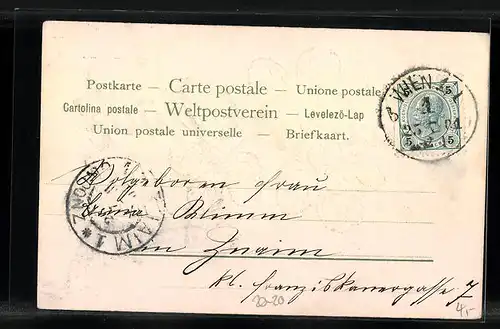 Postkarte — Carte postale — Unione postale
Cartolina postale — Weltpostverein — Levelező-Lap
Union postale universelle — Briefkaart.
WIEN
5 5
5 5
ZNAIM 1 * ZNOJMO
Wolgeboren Frau
Klimm
in Znaim
kl. Franziskanergasse 7
20-20
4,-